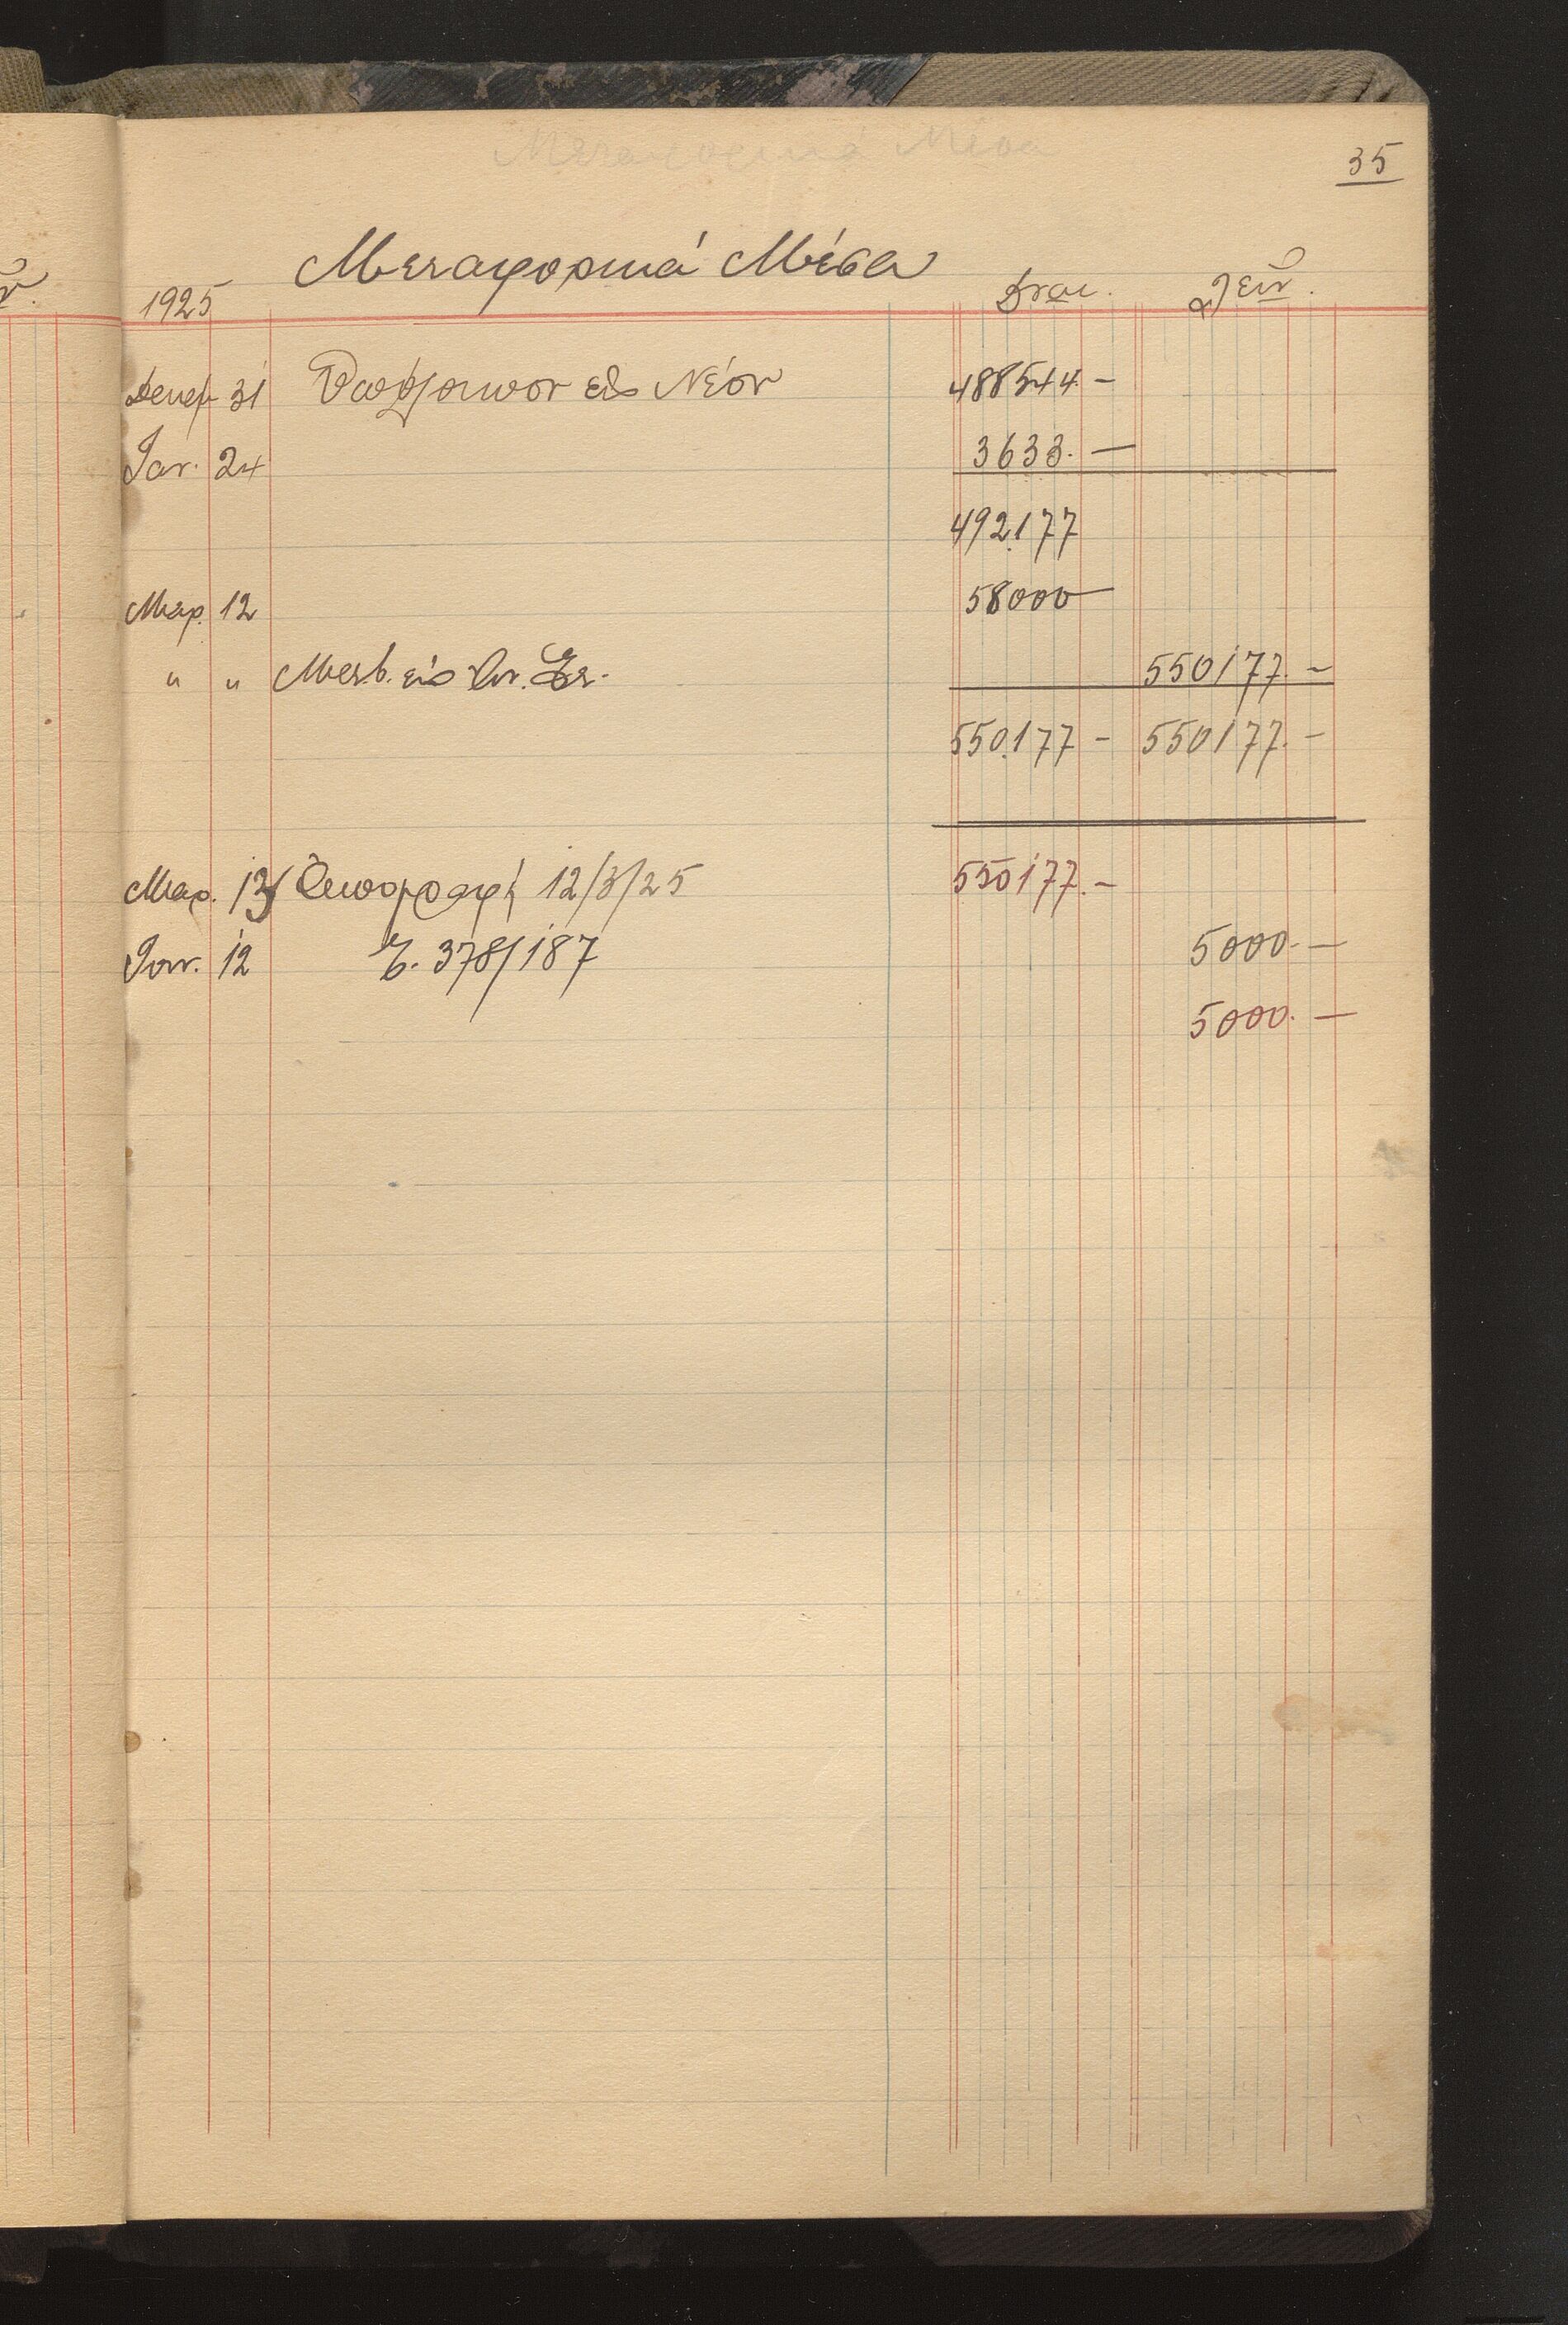 35
Μεταφορικά Μέσα
1925 Δραχ. Λειν.
Δεκεμ. 31 Υπόλοιπον εις Νέον 488544.-
Ιαν. 24 3633.-
492.177
Μαρ. 12 58000-
" " Μεταφ. εις 550177.-
550.177- 550177.-
Μαρ. 13 Απογραφή 12/3/25 550177.-
Ιαν. 12 378/187 5000.-
5000.-